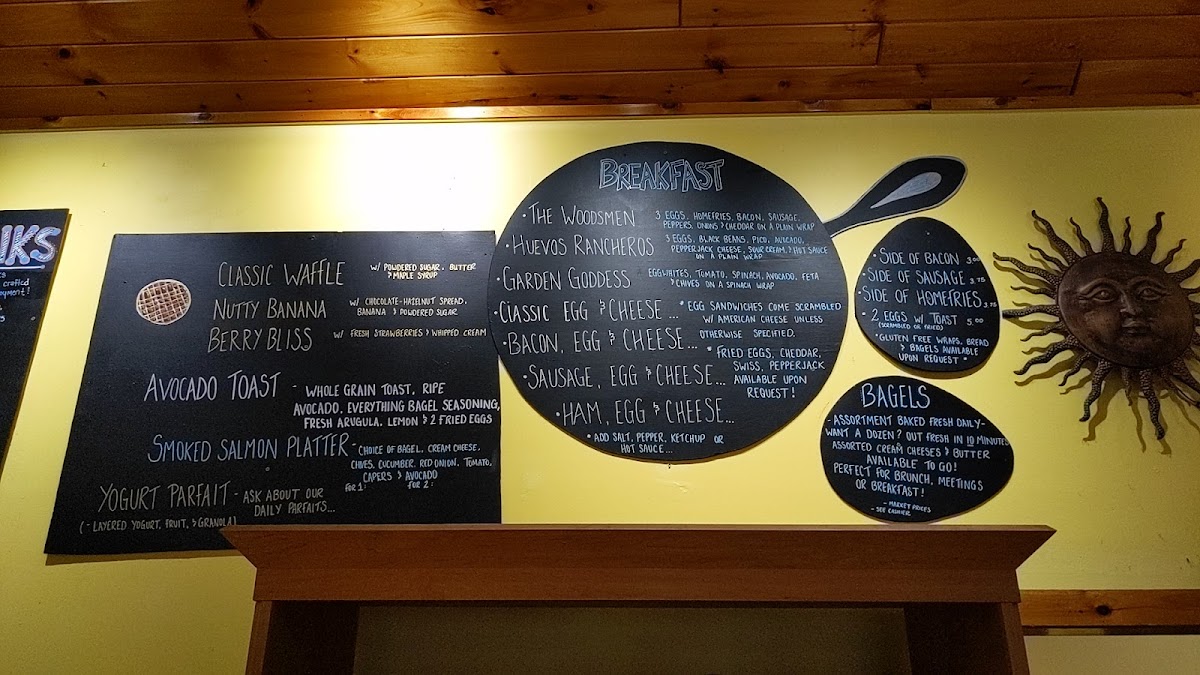 NKS
crafted
CLASSIC WAFFLE W/ POWDERED SUGAR, BUTTER
& MAPLE SYRUP
NUTTY BANANA W/ CHOCOLATE-HAZELNUT SPREAD,
BANANA & POWDERED SUGAR
BERRY BLISS W/ FRESH STRAWBERRIES & WHIPPED CREAM
AVOCADO TOAST - WHOLE GRAIN TOAST, RIPE
AVOCADO, EVERYTHING BAGEL SEASONING,
FRESH ARUGULA, LEMON & 2 FRIED EGGS
SMOKED SALMON PLATTER - CHOICE OF BAGEL, CREAM CHEESE,
CHIVES, CUCUMBER, RED ONION, TOMATO,
CAPERS & AVOCADO
FOR 1: FOR 2:
YOGURT PARFAIT - ASK ABOUT OUR
DAILY PARFAITS...
(- LAYERED YOGURT, FRUIT, & GRANOLA)
BREAKFAST
• THE WOODSMEN 3 EGGS, HOMEFRIES, BACON, SAUSAGE,
PEPPERS, ONIONS & CHEDDAR ON A PLAIN WRAP
• HUEVOS RANCHEROS 3 EGGS, BLACK BEANS, PICO, AVOCADO,
PEPPERJACK CHEESE, SOUR CREAM, & HOT SAUCE
ON A PLAIN WRAP
• GARDEN GODDESS EGGWHITES, TOMATO, SPINACH, AVOCADO, FETA
& CHIVES ON A SPINACH WRAP
• CLASSIC EGG & CHEESE ...
• BACON, EGG & CHEESE...
• SAUSAGE, EGG & CHEESE...
• HAM, EGG & CHEESE...
* EGG SANDWICHES COME SCRAMBLED
W/ AMERICAN CHEESE UNLESS
OTHERWISE SPECIFIED.
* FRIED EGGS, CHEDDAR,
SWISS, PEPPERJACK
AVAILABLE UPON
REQUEST!
• ADD SALT, PEPPER, KETCHUP OR
HOT SAUCE...
• SIDE OF BACON 3.00
• SIDE OF SAUSAGE 3.75
• SIDE OF HOMEFRIES 3.75
• 2 EGGS W/ TOAST 5.00
(SCRAMBLED OR FRIED)
* GLUTEN FREE WRAPS, BREAD
& BAGELS AVAILABLE
UPON REQUEST *
BAGELS
- ASSORTMENT BAKED FRESH DAILY -
WANT A DOZEN? OUT FRESH IN 10 MINUTES
ASSORTED CREAM CHEESES & BUTTER
AVAILABLE TO GO!
PERFECT FOR BRUNCH, MEETINGS
OR BREAKFAST!
- MARKET PRICES
- SEE CASHIER